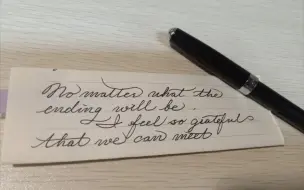 No matter what the
ending will be.
I feel so grateful
that we can meet